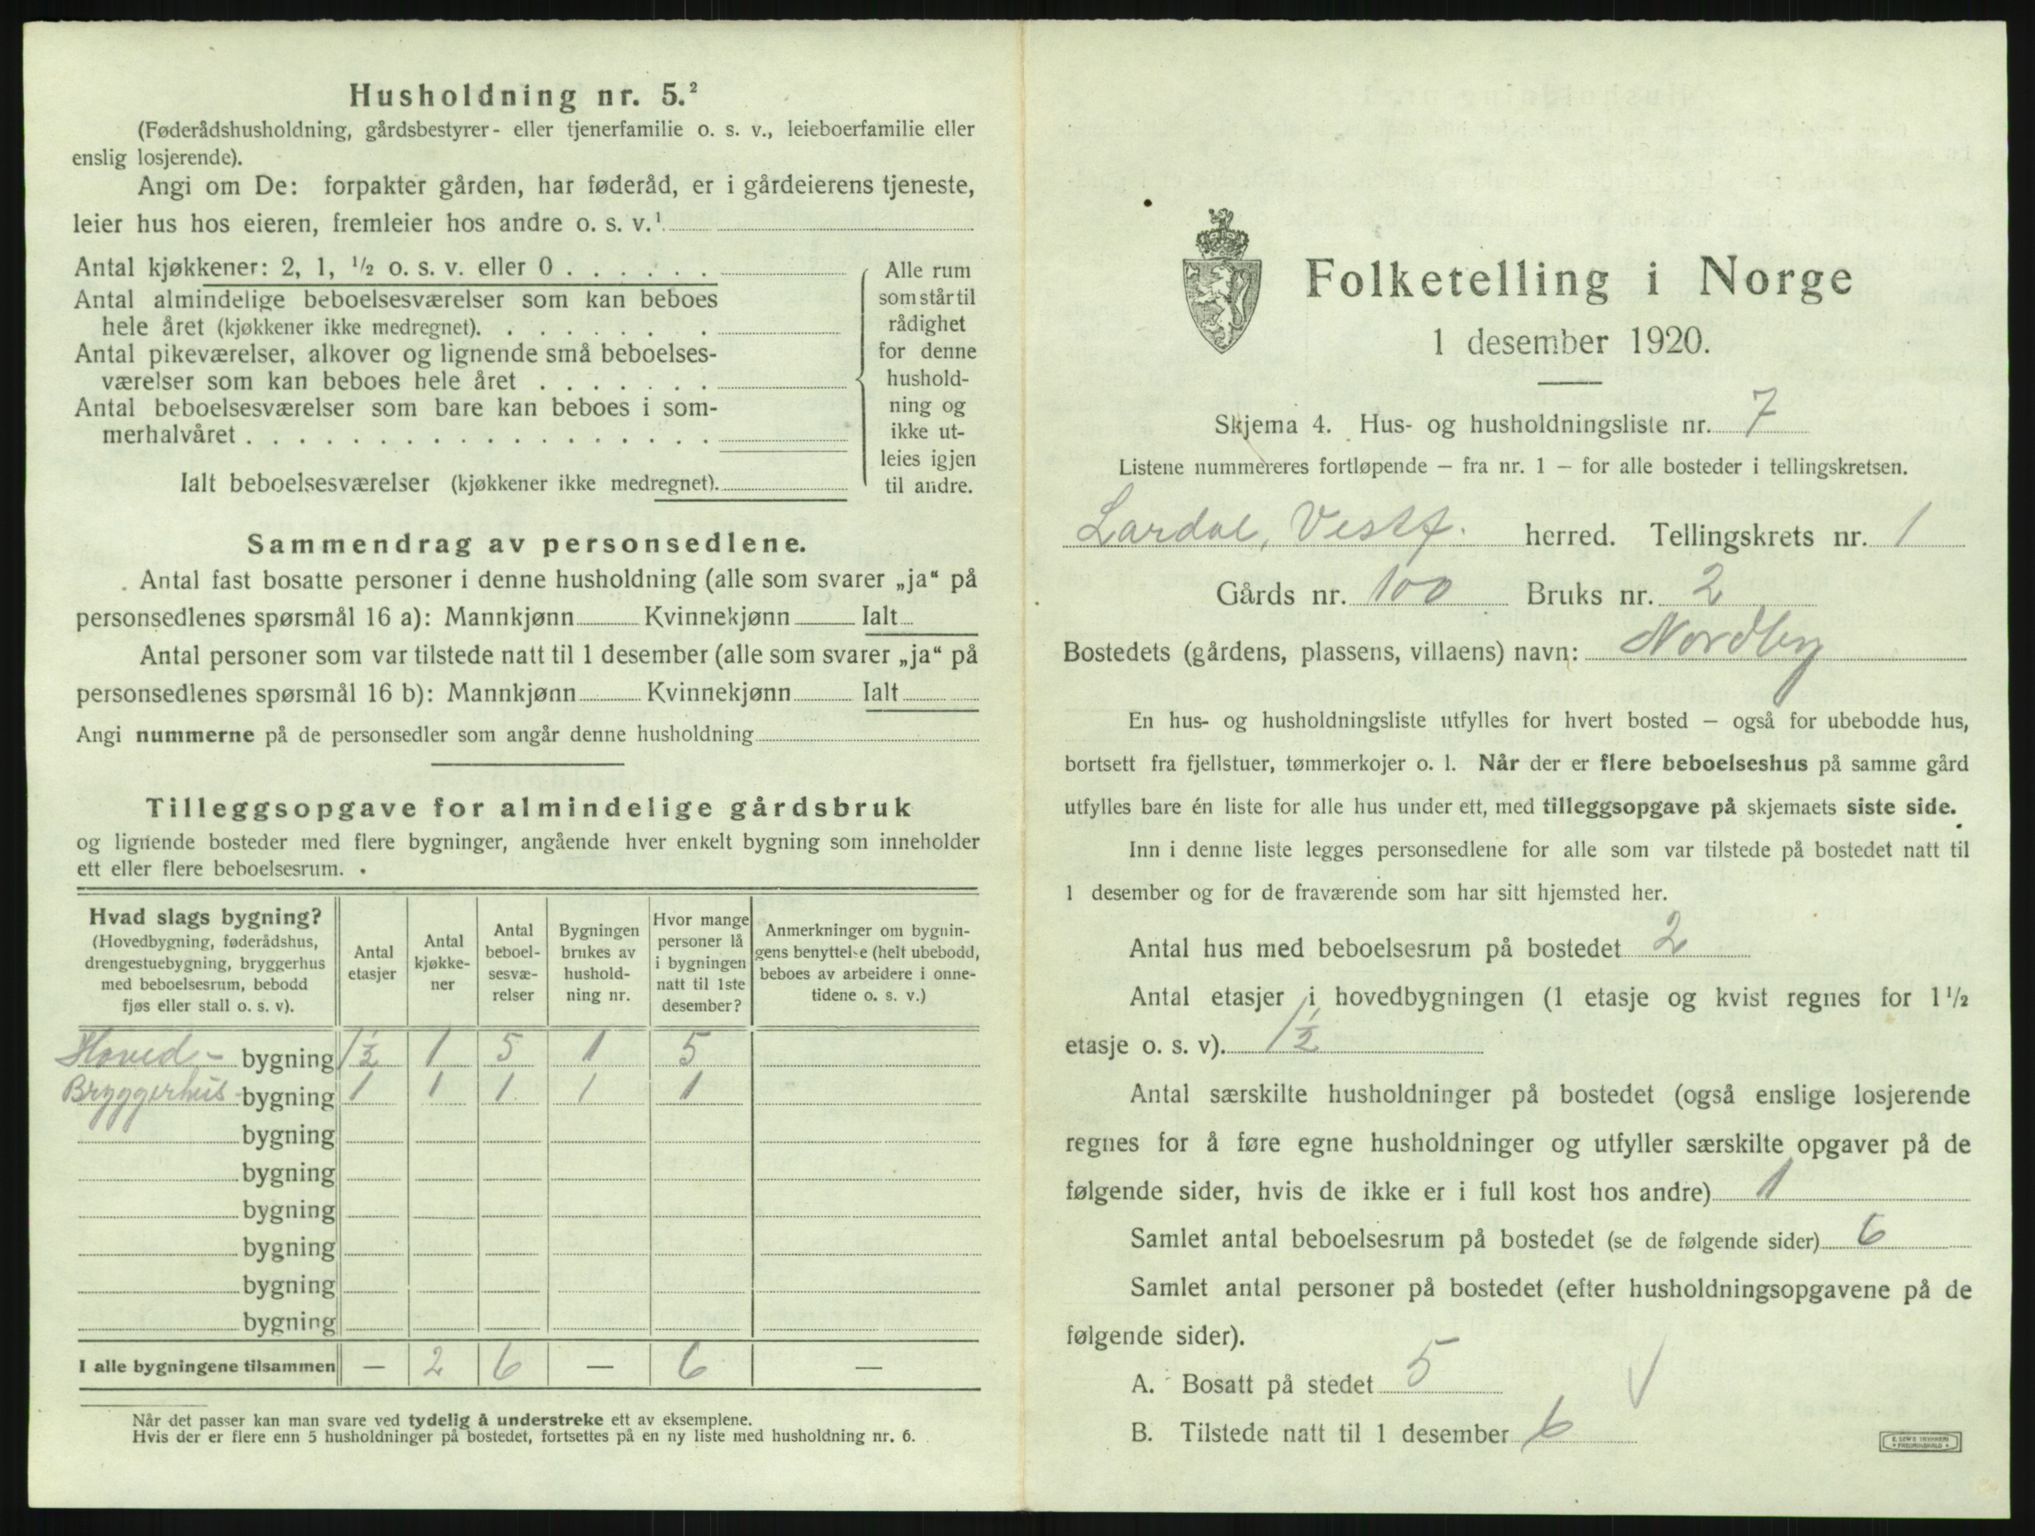 Husholdning nr. 5.²
(Føderådshusholdning, gårdsbestyrer- eller tjenerfamilie o. s. v., leieboerfamilie eller
enslig losjerende).
Angi om De: forpakter gården, har føderåd, er i gårdeierens tjeneste,
leier hus hos eieren, fremleier hos andre o. s. v.¹
Antal kjøkkener: 2, 1, ½ o. s. v. eller 0 . . . . . .
Antal almindelige beboelsesværelser som kan beboes
hele året (kjøkkener ikke medregnet). . . . . . . . .
Antal pikeværelser, alkover og lignende små beboelses-
værelser som kan beboes hele året . . . . . . .
Antal beboelsesværelser som bare kan beboes i som-
merhalvåret . . . . . . . . . . . . . . . . . .
Ialt beboelsesværelser (kjøkkener ikke medregnet).
Alle rum
som står til
rådighet
for denne
hushold-
ning og
ikke ut-
leies igjen
til andre.
Sammendrag av personsedlene.
Antal fast bosatte personer i denne husholdning (alle som svarer „ja“ på
personsedlenes spørsmål 16 a): Mannkjønn Kvinnekjønn Ialt
Antal personer som var tilstede natt til 1 desember (alle som svarer „ja“ på
personsedlenes spørsmål 16 b): Mannkjønn Kvinnekjønn Ialt
Angi nummerne på de personsedler som angår denne husholdning
Tilleggsopgave for almindelige gårdsbruk
og lignende bosteder med flere bygninger, angående hver enkelt bygning som inneholder
ett eller flere beboelsesrum.
Hvad slags bygning?
(Hovedbygning, føderådshus,
drengestuebygning, bryggerhus
med beboelsesrum, bebodd
fjøs eller stall o. s. v).
Antal
etasjer
Antal
kjøkke-
ner
Antal
beboel-
sesvæ-
relser
Bygningen
brukes av
hushold-
ning nr.
Hvor mange
personer lå
i bygningen
natt til 1ste
desember?
Anmerkninger om bygnin-
gens benyttelse (helt ubebodd,
beboes av arbeidere i onne-
tidene o. s. v.)
Hoved- bygning 1½ 1 5 1 5
Bryggerhus- bygning 1 1 1 1 1
bygning
bygning
bygning
bygning
bygning
bygning
I alle bygningene tilsammen — 2 6 — 6 —
Når det passer kan man svare ved tydelig å understreke ett av eksemplene.
Hvis der er flere enn 5 husholdninger på bostedet, fortsettes på en ny liste med husholdning nr. 6.
Folketelling i Norge
1 desember 1920.
Skjema 4. Hus- og husholdningsliste nr. 7
Listene nummereres fortløpende – fra nr. 1 – for alle bosteder i tellingskretsen.
Lardal, Vestf. herred. Tellingskrets nr. 1
Gårds nr. 100 Bruks nr. 2
Bostedets (gårdens, plassens, villaens) navn: Nordby
En hus- og husholdningsliste utfylles for hvert bosted – også for ubebodde hus,
bortsett fra fjellstuer, tømmerkojer o. l. Når der er flere beboelseshus på samme gård
utfylles bare én liste for alle hus under ett, med tilleggsopgave på skjemaets siste side.
Inn i denne liste legges personsedlene for alle som var tilstede på bostedet natt til
1 desember og for de fraværende som har sitt hjemsted her.
Antal hus med beboelsesrum på bostedet 2
Antal etasjer i hovedbygningen (1 etasje og kvist regnes for 1½
etasje o. s. v). 1½
Antal særskilte husholdninger på bostedet (også enslige losjerende
regnes for å føre egne husholdninger og utfyller særskilte opgaver på de
følgende sider, hvis de ikke er i full kost hos andre) 1
Samlet antal beboelsesrum på bostedet (se de følgende sider) 6
Samlet antal personer på bostedet (efter husholdningsopgavene på de
følgende sider).
A. Bosatt på stedet 5
B. Tilstede natt til 1 desember 6